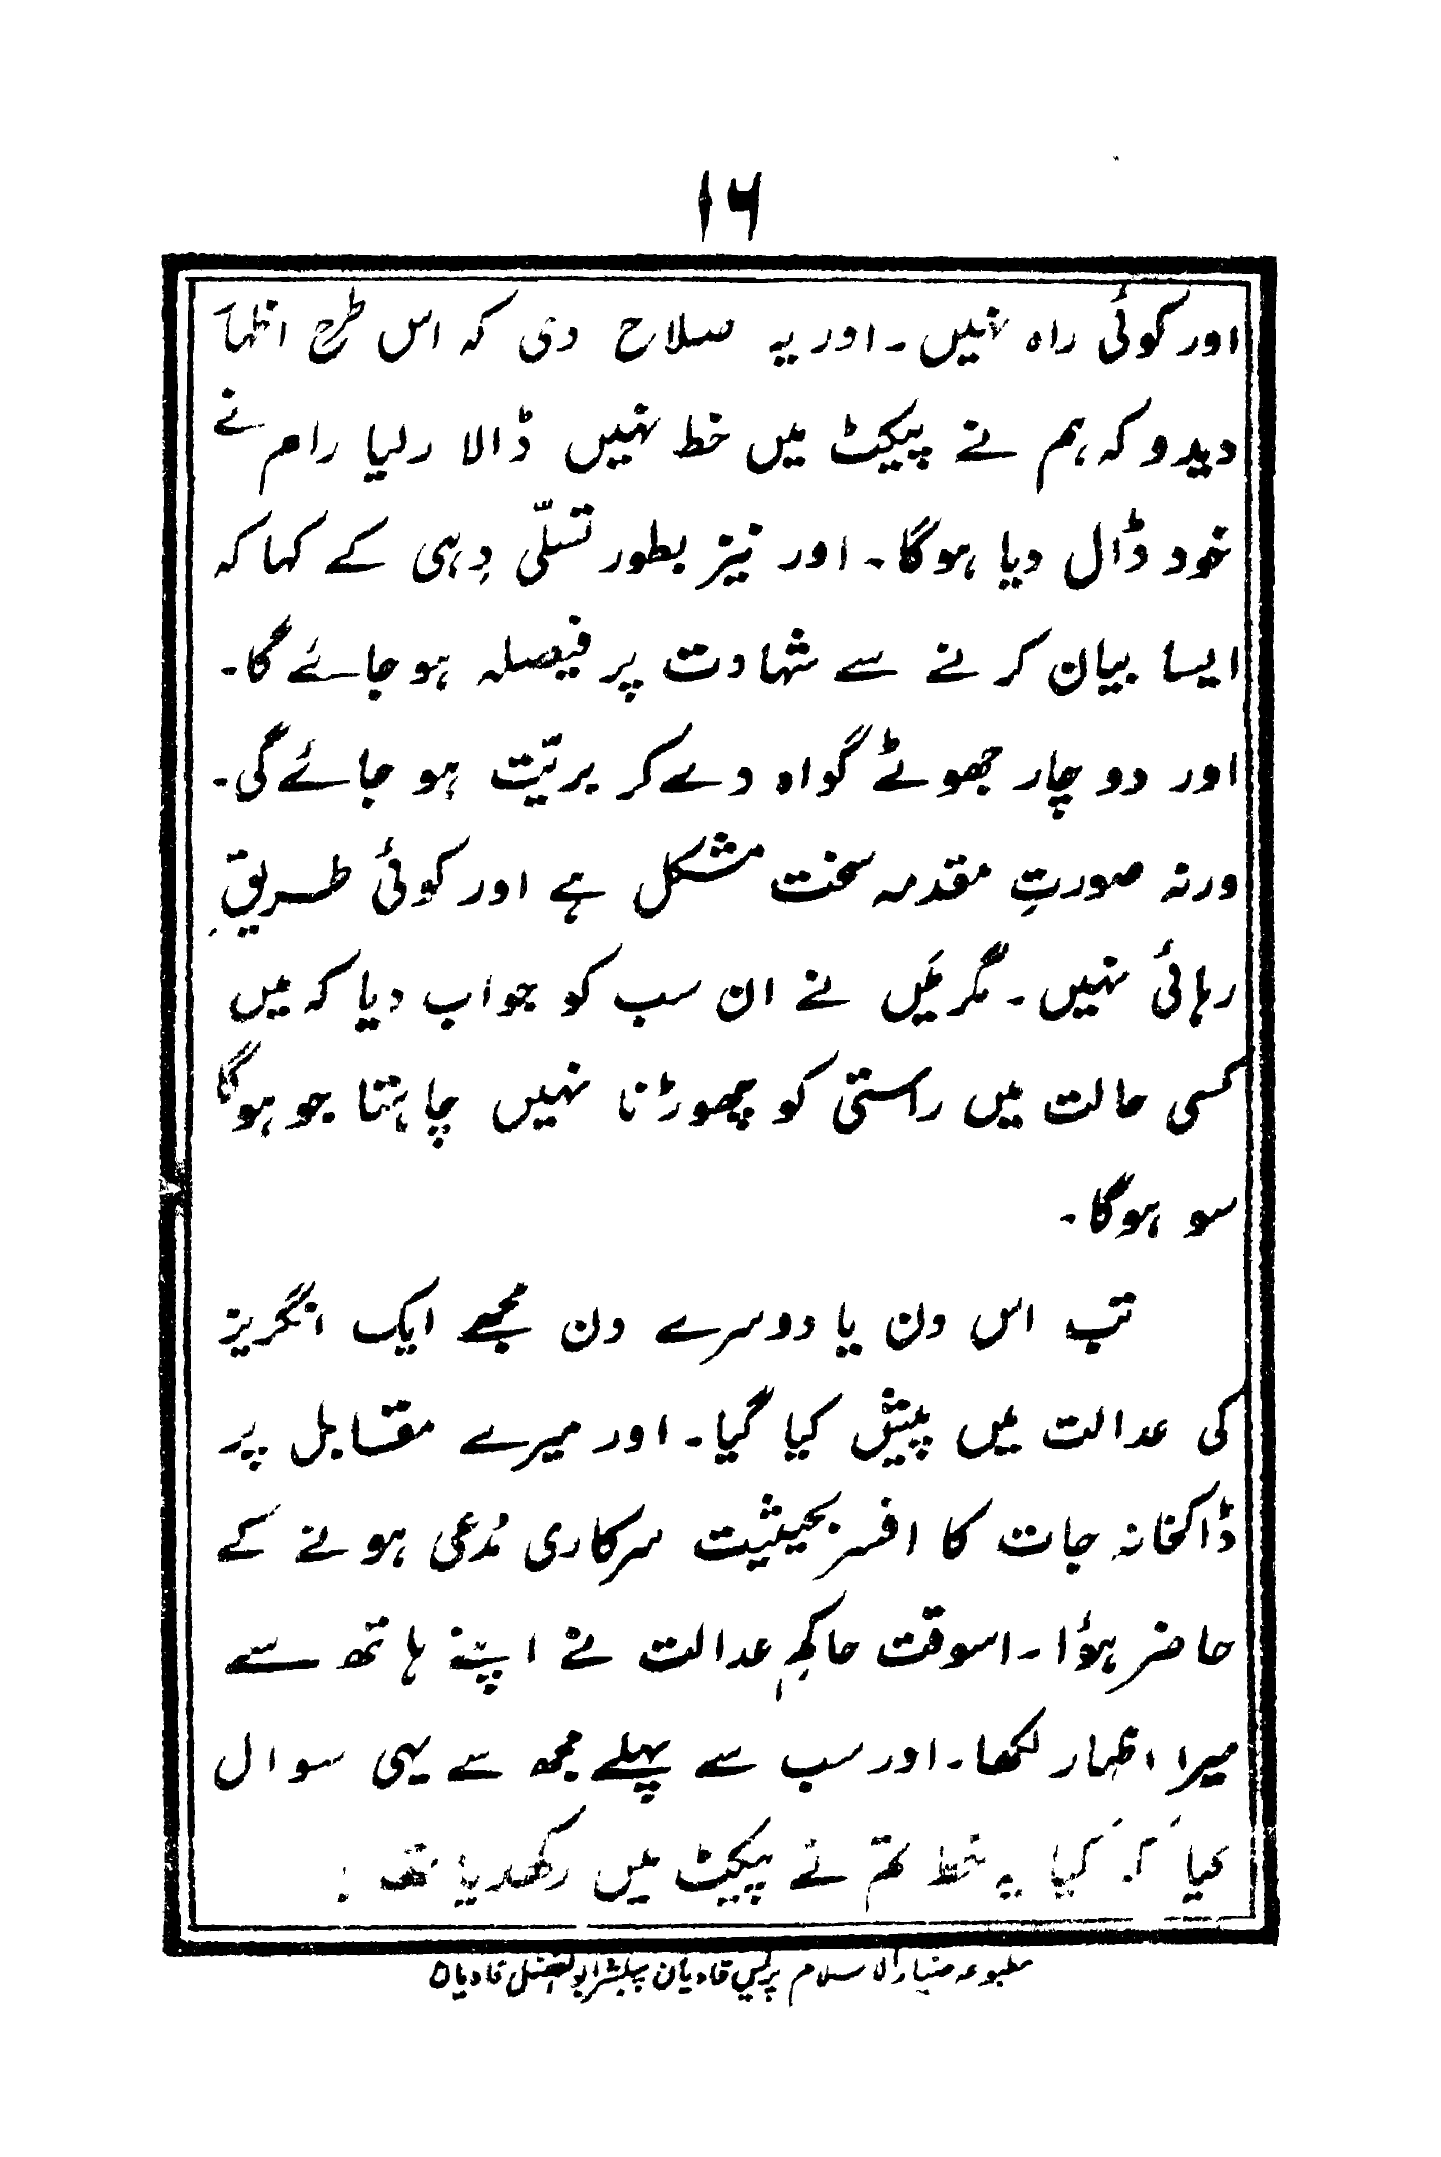 ۱۶
اور کوئی راہ نہیں۔ اور یہ صلاح دی کہ اس طرح اظہار
دیدو کہ ہم نے پیکٹ میں خط نہیں ڈالا رلیا رام نے
خود ڈال دیا ہوگا۔ اور نیز بطور تسلّی دِہی کے کہا کہ
ایسا بیان کرنے سے شہادت پر فیصلہ ہو جائے گا۔
اور دو چار جھوٹے گواہ دے کر بریّت ہو جائے گی۔
ورنہ صورتِ مقدمہ سخت مشکل ہے اور کوئی طریقِ
رہائی نہیں۔ مگر مَیں نے ان سب کو جواب دیا کہ میں
کسی حالت میں راستی کو چھوڑنا نہیں چاہتا جو ہوگا
سو ہوگا۔
تب اس دن یا دوسرے دن مجھے ایک انگریز
کی عدالت میں پیش کیا گیا۔ اور میرے مقابل پر
ڈاکخانہ جات کا افسر بحیثیت سرکاری مُدعی ہونے کے
حاضر ہؤا۔ اسوقت حاکمِ عدالت نے اپنے ہاتھ سے
میرا اظہار لکھا۔ اور سب سے پہلے مجھ سے یہی سوال
کیا کہ کیا یہ خط تم نے پیکٹ میں رکھدیا تھا
مطبوعہ ضیاء الاسلام پریس قادیان پبلشر ابو الفضل قادیان